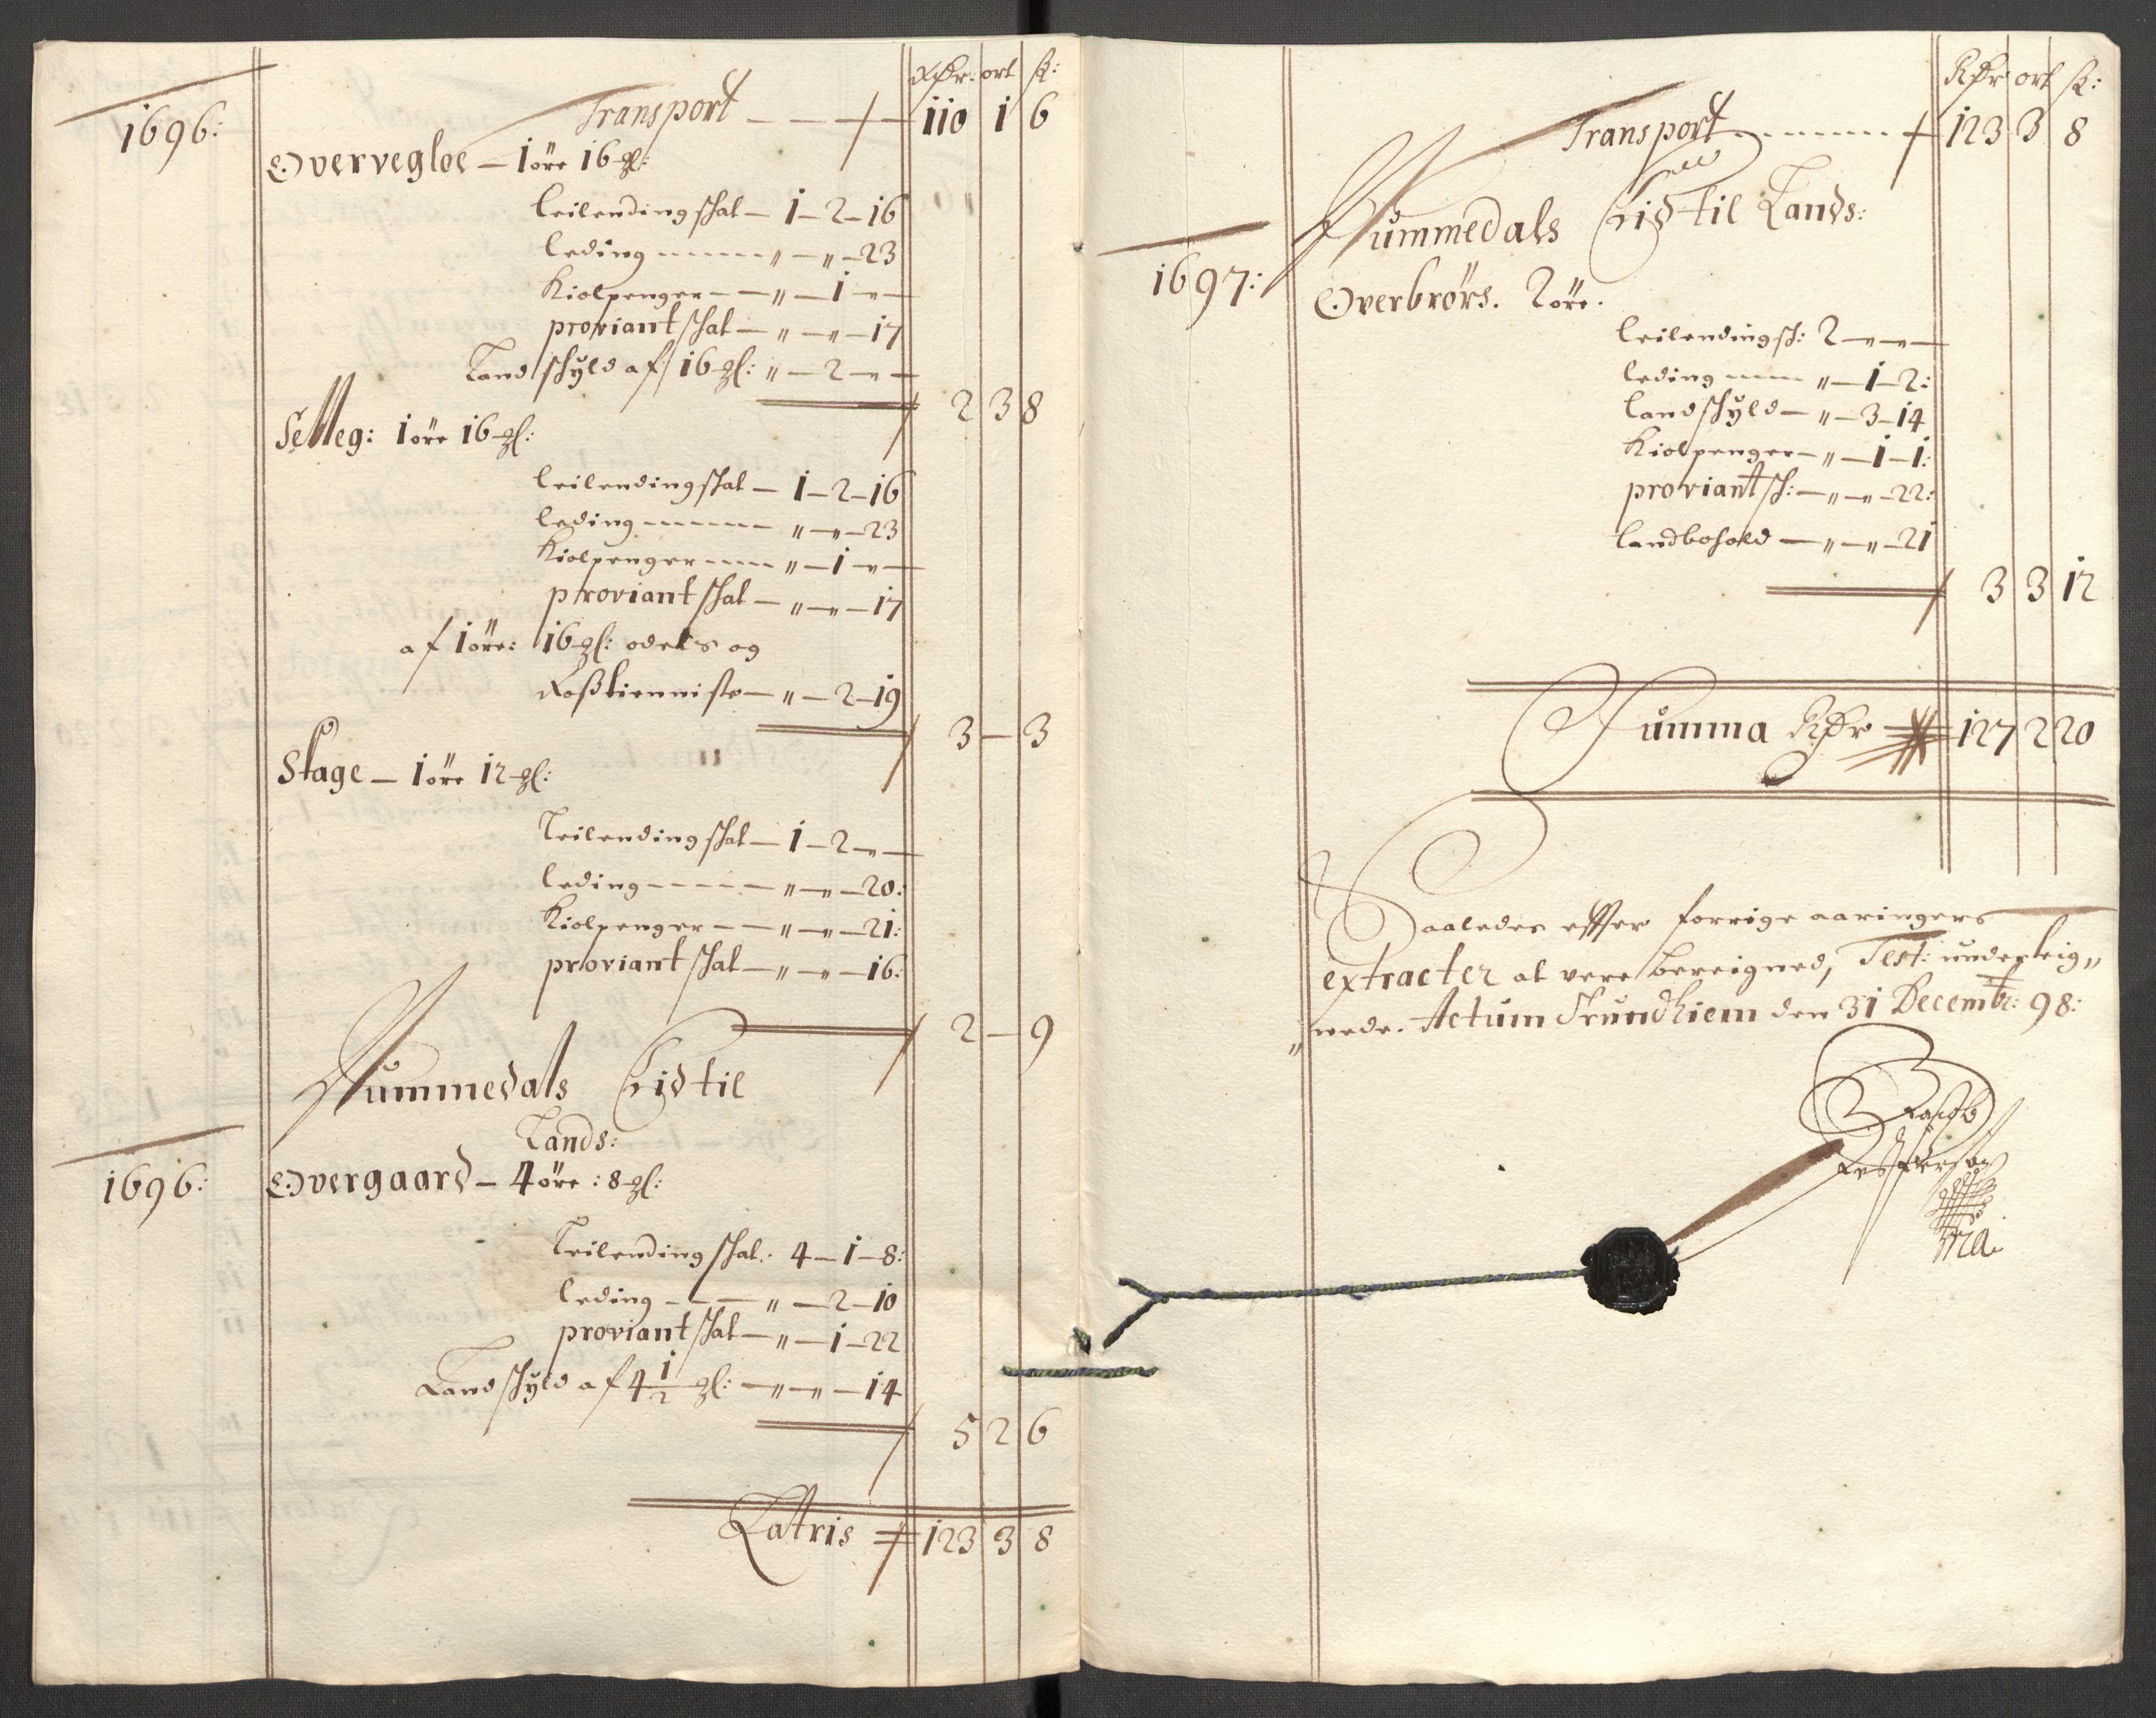 Rdr: ort ß:
Transport – – – 110 1 6
1696:
Overvegloe – 1 öre 16 gl:
leilending schat – 1 – 2 – 16
leding – – – – " – " – 23
Kiolpenger – – " – 1 – " –
proviant schat – " – " – 17
Landschyld af 16 gl: " – 2 – " –
2 3 8
Selleg: 1 öre 16 gl:
leilending schat – 1 – 2 – 16
leding – – – – " – " – 23
Kiolpenger – – – " – 1 – " –
proviant schat – " – " – 17
af 1 öre: 16 gl: odels og
Roßtienniste – " – 2 – 19
3 – 3
Stage – 1 öre 12 gl:
Leilending schat – 1 – 2 – " –
leding – – – – " – " – 20:
Kiolpenger – – " – " – 21:
proviant schat – " – " – 16:
2 – 9
Nummedals Eid til
Lands:
1696:
Overgaard – 4 öre : 8 gl:
Leilending schat: 4 – 1 – 8:
leding – – – " – 2 – 10
proviant schat – " – 1 – 22
Landschyld af 4 1/2 gl: – " – " – 14
5 2 6
Latris 123 3 8
Rdr ort ß:
Transport – – – – 123 3 8
Nummedals Eid til Lands:
1697:
Overbrörs. 2 öre.
leilending sch: 2 – " – " –
leding – – – " – 1 – 2:
landschyld – " – 3 – 14
Kiolpenger – " – 1 – 1:
proviant sch: – " – " – 22:
landbohold – " – " – 21
3 3 12
Summa Rdr 127 2 20
Saaledes efter forrige aaringers
extracter at vere bereigned, Test: underteig„
„nede. Actum Trundhiem den 31 Decembr: 98:
Jacob
mà.